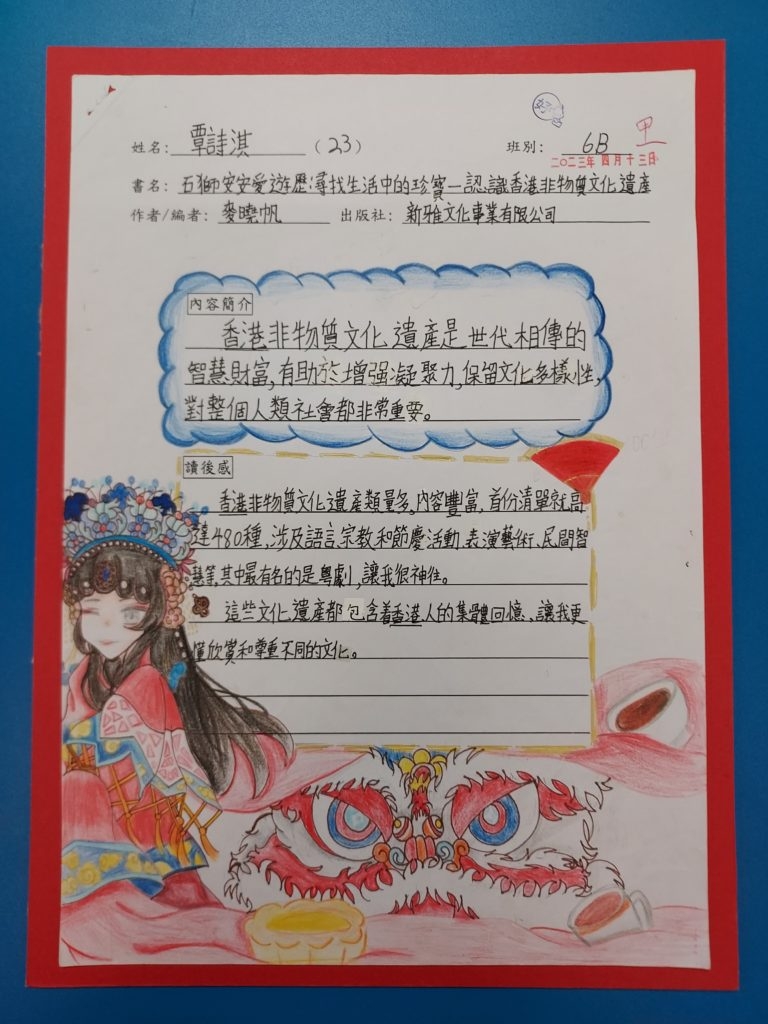 甲
姓名：覃詩淇（23） 班別：6B
二〇二三年四月十三日
書名：石獅安安愛遊歷：尋找生活中的珍寶—認識香港非物質文化遺產
作者/編者：麥曉帆 出版社：新雅文化事業有限公司
內容簡介
香港非物質文化遺產是世代相傳的
智慧財富，有助於增强凝聚力，保留文化多樣性，
對整個人類社會都非常重要。
讀後感
香港非物質文化遺產類量多，內容豐富，首份清單就高
達480種，涉及語言、宗教和節慶活動、表演藝術、民間智
慧等，其中最有名的是粵劇，讓我很神往。
這些文化遺產都包含着香港人的集體回憶，讓我更
懂欣賞和尊重不同的文化。